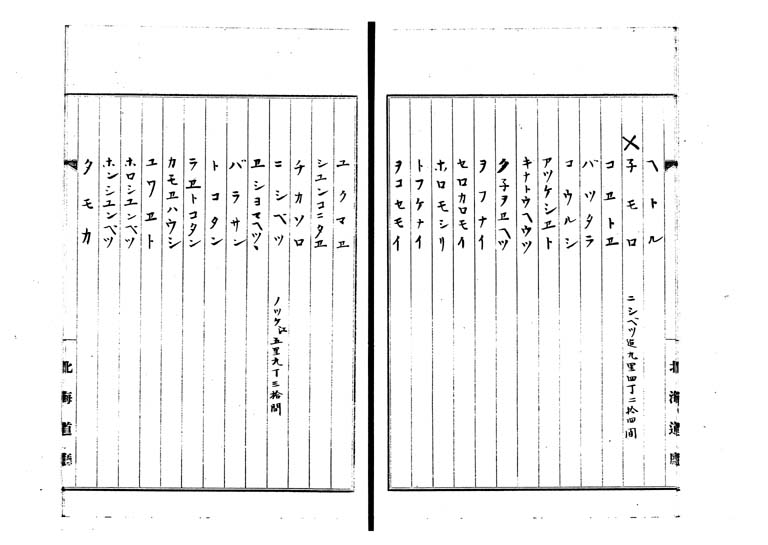 ヘトル
×子モロ ニシベツ迄九里四丁二拾四間
コヱトヱ
バツタラ
コウルシ
アツケシヱト
キナトウヘウツ
夕子ヲヱヘツ
ヲフナイ
セロカロモイ
ホロモシリ
トフケナイ
ヲコセモイ
北海道廳
ユクマヱ
シユンコニタヱ
チカソロ
ニシベツ ノツケ江五里九丁三拾間
ヱシヨマヘツ
バラサン
トコタン
ラヱトコタン
カモヱハウシ
ユワヱト
ホロシユンベツ
ホンシユンベツ
タモカ
北海道廳